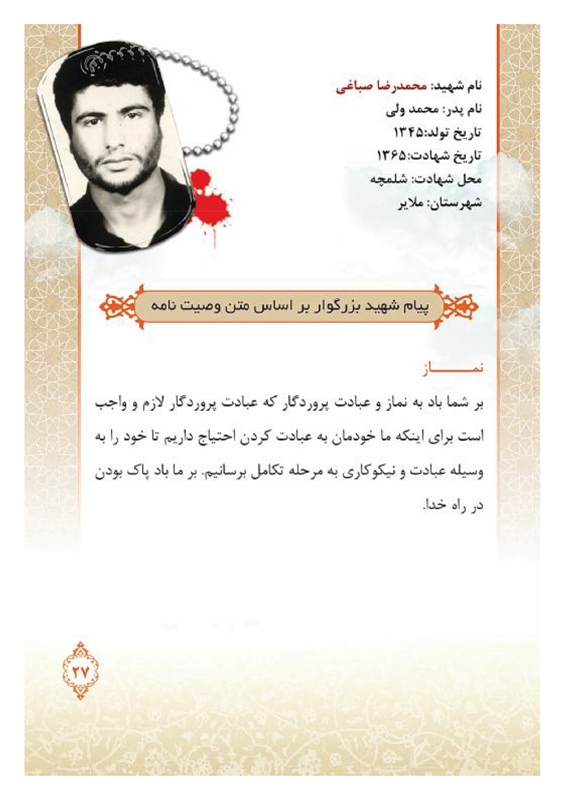 نام شهید: محمدرضا صباغی
نام پدر: محمد ولی
تاریخ تولد:۱۳۴۵
تاریخ شهادت:۱۳۶۵
محل شهادت: شلمچه
شهرستان: ملایر
پیام شهید بزرگوار بر اساس متن وصیت نامه
نمـــــــاز
بر شما باد به نماز و عبادت پروردگار که عبادت پروردگار لازم و واجب
است برای اینکه ما خودمان به عبادت کردن احتیاج داریم تا خود را به
وسیله عبادت و نیکوکاری به مرحله تکامل برسانیم. بر ما باد پاک بودن
در راه خدا.
۲۷